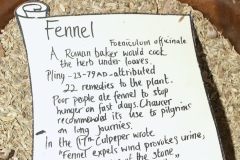 Fennel
Foeniculum officinale
A Roman baker would cook
the herb under loaves.
Pliny -23-79 AD-attributed
22 remedies to the plant.
Poor people ate fennel to stop
hunger on fast days. Chaucer
recommended its use to pilgrims
on long journies.
In the 17th Culpeper wrote
"Fennel expels wind provokes urine,
of the stone"